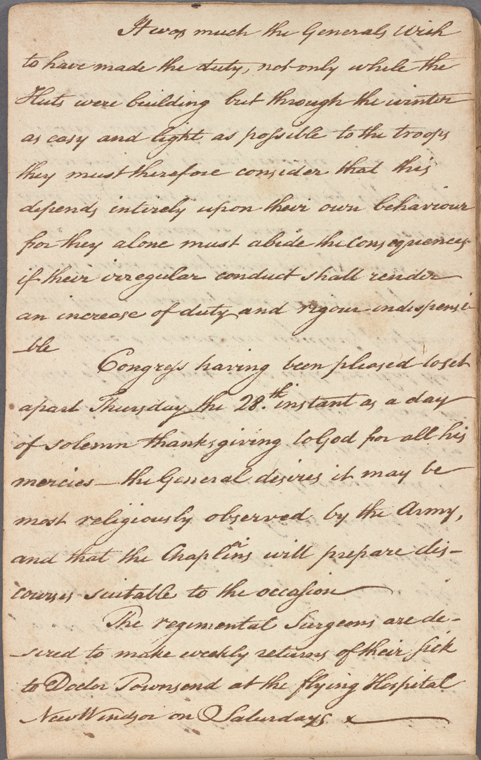 It was much the Generals Wish
to have made the duty, not only while the
Huts were building but through the winter
as easy and light as possible to the troops
they must therefore consider that this
depends intirely upon their own behaviour
for they alone must abide the Consequences
if their irregular conduct shall render
an increase of duty and rigour indispensi-
-ble
Congress having been pleased to set
apart Thursday the 28.th instant as a day
of solemn thanksgiving to God for all his
mercies — the General desires it may be
most religiously observed by the Army,
and that the Chaplins will prepare dis-
courses suitable to the occasion
The regimental Surgeons are de-
-sired to make weekly returns of their sick
to Doctor Townsend at the flying Hospital
New Windsor on Saturdays